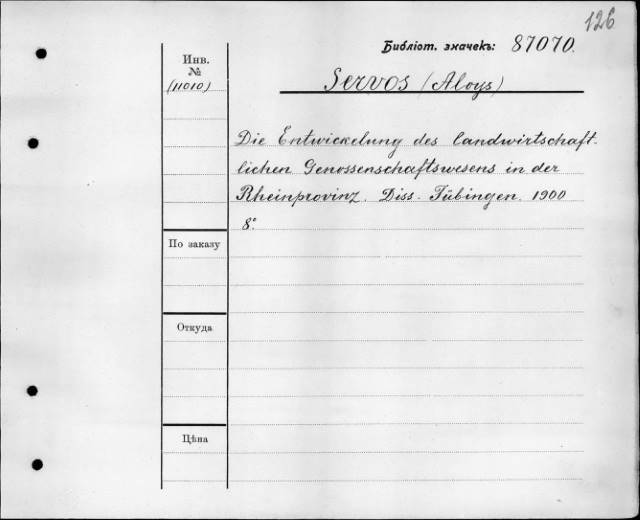 126
Библіот. значекъ: 87070.
Инв.
№
(11010)
Servos (Aloys)
Die Entwickelung des landwirtschaft-
lichen Genossenschaftswesens in der
Rheinprovinz. Diss. Tübingen. 1900
8°.
По заказу
Откуда
Цѣна